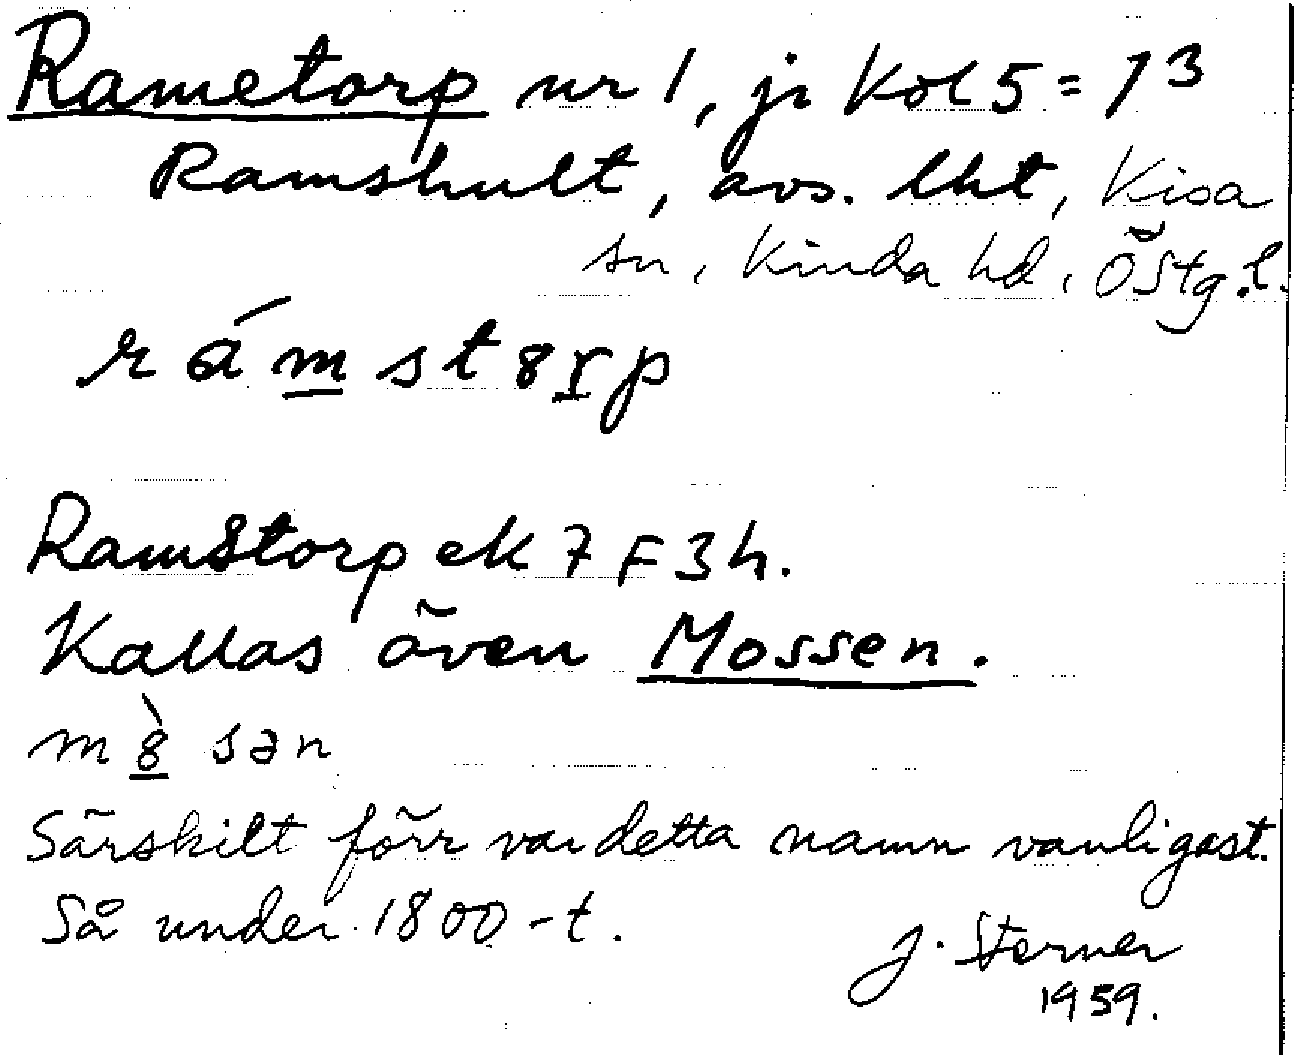 Rametorp nr 1, jr Kol 5 = 13
Ramshult, avs. lht, Kisa
sn, Kinda hd, Östg.l.
rámstȣrp
Ramstorp ek 7 F 3 h.
Kallas även Mossen.
mȣ̀sən
Särskilt förr var detta namn vanligast.
Så under 1800-t.
J. Sterner
1959.